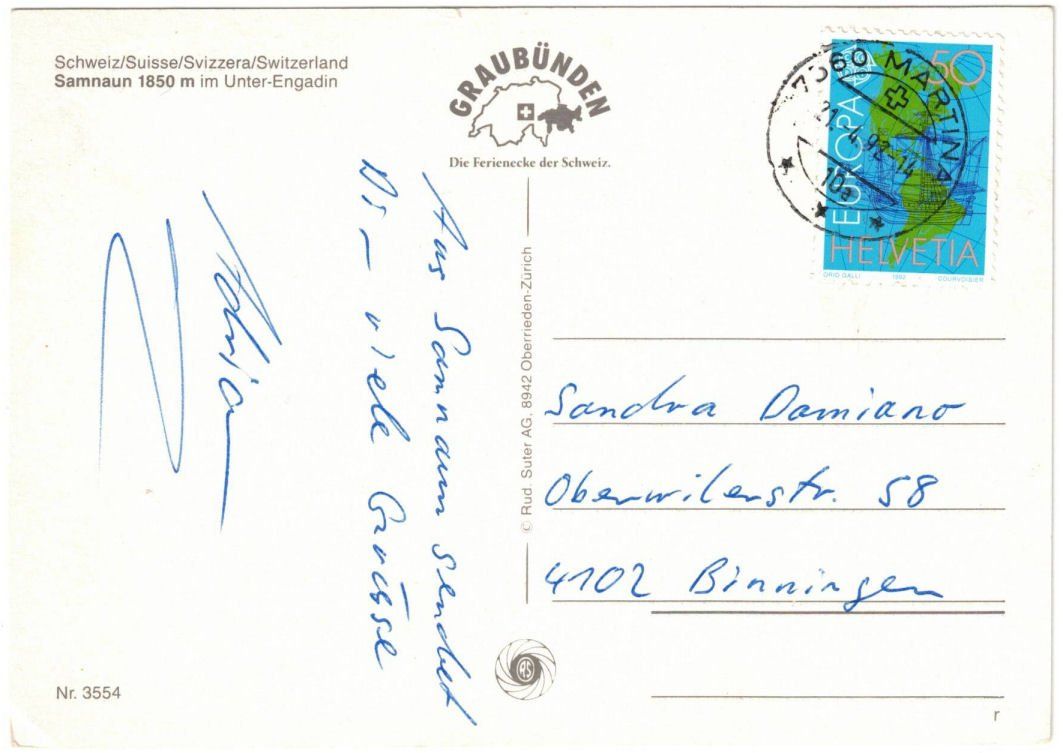 Schweiz/Suisse/Svizzera/Switzerland
Samnaun 1850 m im Unter-Engadin
GRAUBÜNDEN
Die Ferienecke der Schweiz.
7560 MARTINA
21.-4.92-14
10a
50
EUROPA
HELVETIA
ORIO GALLI 1992 COURVOISIER
Aus Samnaun sendet
Dir – viele Grüsse
© Rud. Suter AG. 8942 Oberrieden-Zürich
Sandra Damiano
Oberwilerstr. 58
4102 Binningen
RS
Nr. 3554
r